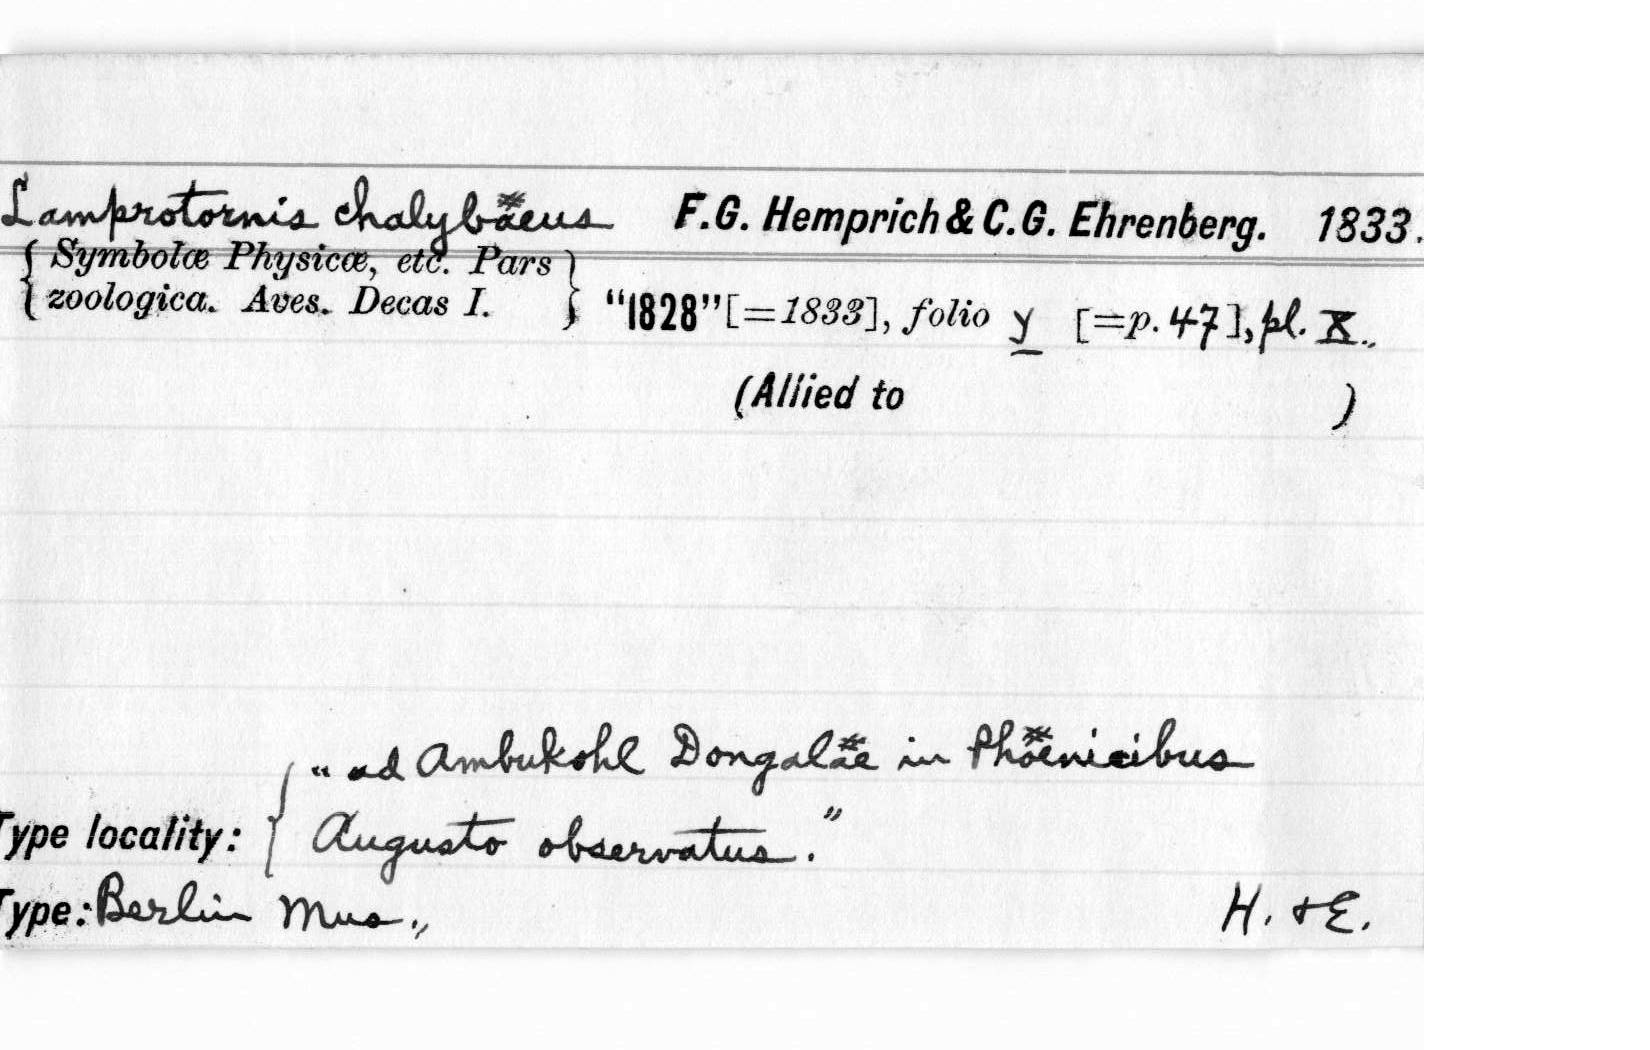 Lamprotornis chalybäeus F.G. Hemprich & C.G. Ehrenberg. 1833.
{ Symbolæ Physicæ, etc. Pars }
{ zoologica. Aves. Decas I. } "1828" [=1833], folio y [=p. 47], pl. X.,
(Allied to )
"ad Ambukohl Dongaläe in Phöenicibus
Type locality: { Augusto observatus."
Type: Berlin Mus., H. & E.